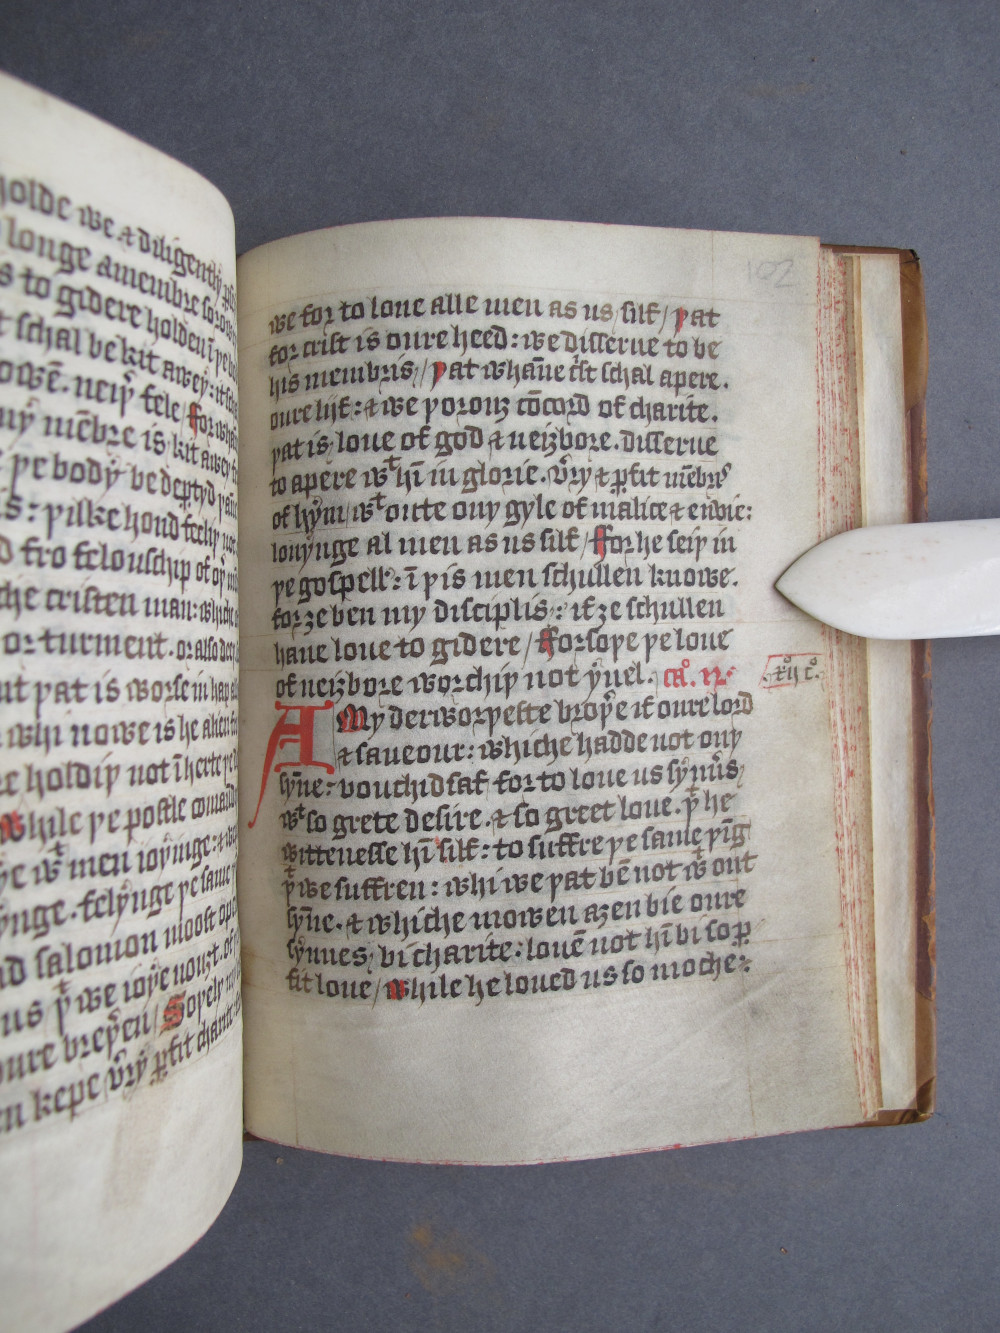 holde we & diligently
longe a membre so
s to gidere holden ī þe
t schal be kit awey: it
owē. neiþ᷑ fele / For
ny mēbre is kit awey
þe body be deꝑtyd þāne
is: þilke hond feliþ not
d fro felouschip of oþ᷑
the cristen man: whiche
or turment. or also
ut þat is worse in hap
whi nowe is he
re holdiþ not ī herte þe
While þe postle
ȝe wᵗ men ioyīnge: &
ynge. felynge þe same
d salomon moost
us þᵗ we ioye nouȝt. of
oure breþ᷑en / Soþely my
en kepe v᷑ry ꝑfit charite
102
we for to loue alle men as us silf / þat
for crist is oure heed: we disserue to be
his membris // þat whāne c᷑st schal apere.
oure lijf: & we þorouȝ cōcord of charite.
þat is / loue of god & neiȝbore. disserue
to apere wᵗ hī in glorie. v᷑ry & ꝑfit mēbrˢ
of hym / wᵗ outte ony gyle of malice & enuie:
louynge al men as us silf / For he seiþ in
þe gospell: ī þis men schullen knowe.
for ȝe ben my disciplis: if ȝe schullen
haue loue to gidere / Forsoþe þe loue
of neiȝbore worchiþ not yuel. cᵃ. xɪᵒ.
xij cᵒ.
A My derworþeste broþ᷑e if oure lord
& saueour: whiche hadde not ony
syn̄e: vouchid saf for to loue us synn᷑s
wᵗ so grete desire. & so greet loue. þᵗ he
wittenesse hī silf: to suffre þe same þīg
þᵗ we suffren: whi we þat bēn not wᵗ out
syn̄e. & whiche mowen aȝen bie oure
synnes / bi charite: louē not hī bi so ꝑ
fit loue / While he loued us so moche: